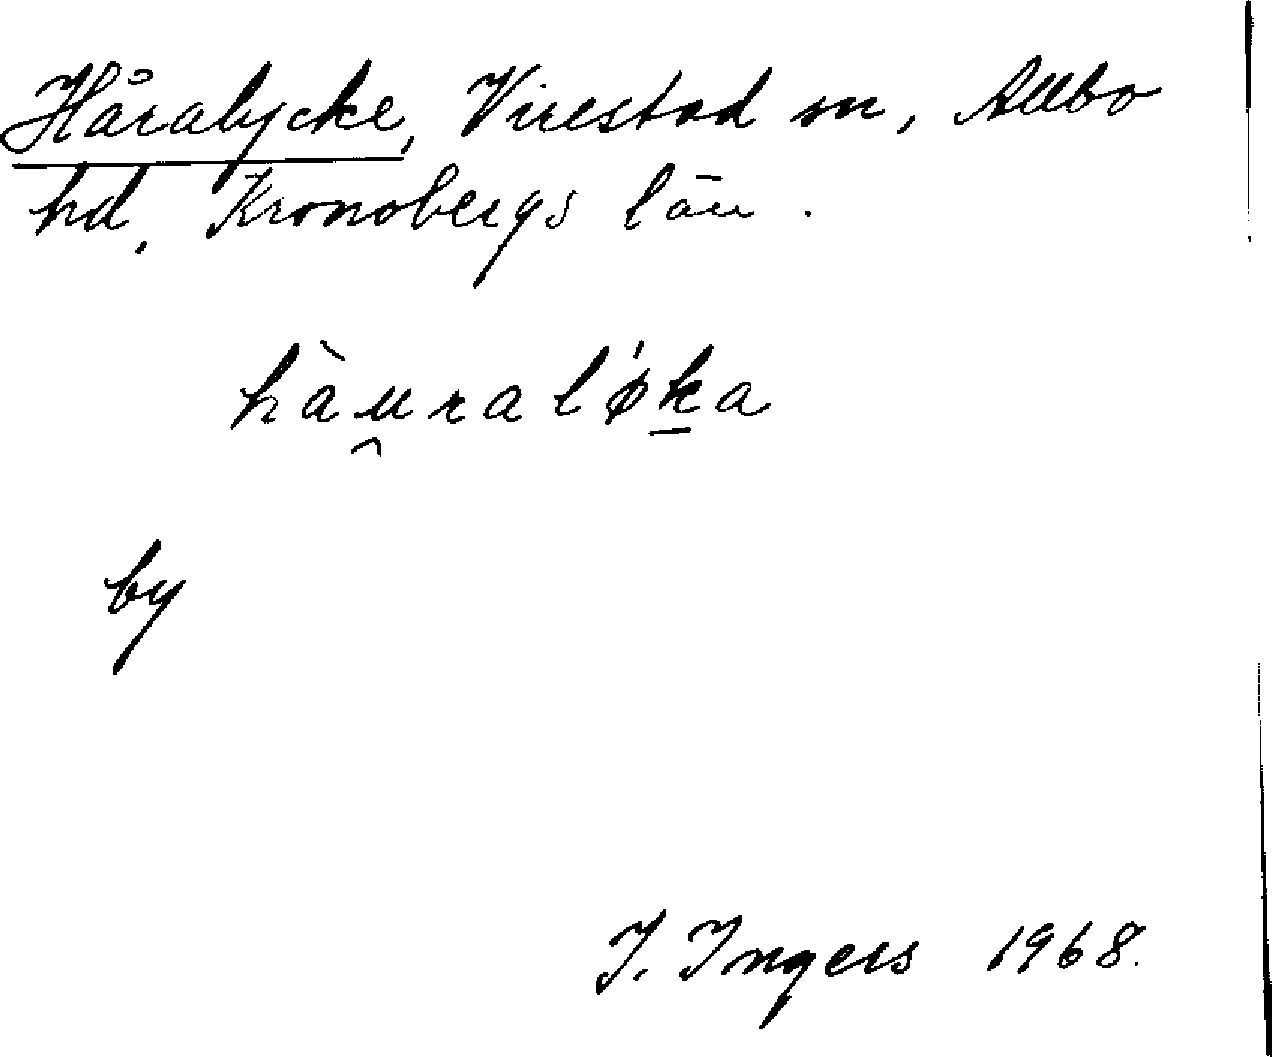 Håralycke, Virestad sn, Allbo
hd, Kronobergs län.
hàu̯ralǿḵa
by
I. Ingers 1968.